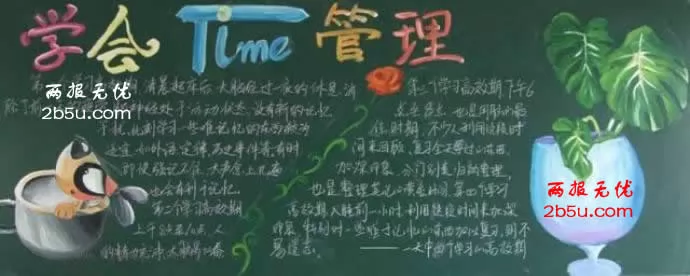 学会Time管理
两报无优
2b5u.com
清晨起床后 大脑经过一夜的休息 消
神经处于活动状态 没有新的记忆
干扰 此刻学习一些难记忆的东西较为
适宜 如外语 定律 历史事件等 有时
即使强记不住 大声念上几遍
也会有利于记忆
第二个学习高效期
上午8点至10点 人
的精力充沛
第三个学习高效期 下午6
点至8点 也是用脑的最
佳时期 不少人利用这段时
间来回顾、复习全天学过的东西
加深印象 分门别类 归纳整理
也是整理笔记的黄金时间 第四个学习
高效期 入睡前一小时 利用这段时间来加深
印象 特别对一些难于记忆的东西加以复习 则不
易遗忘
一天中四个学习的高效期
两报无优
2b5u.com